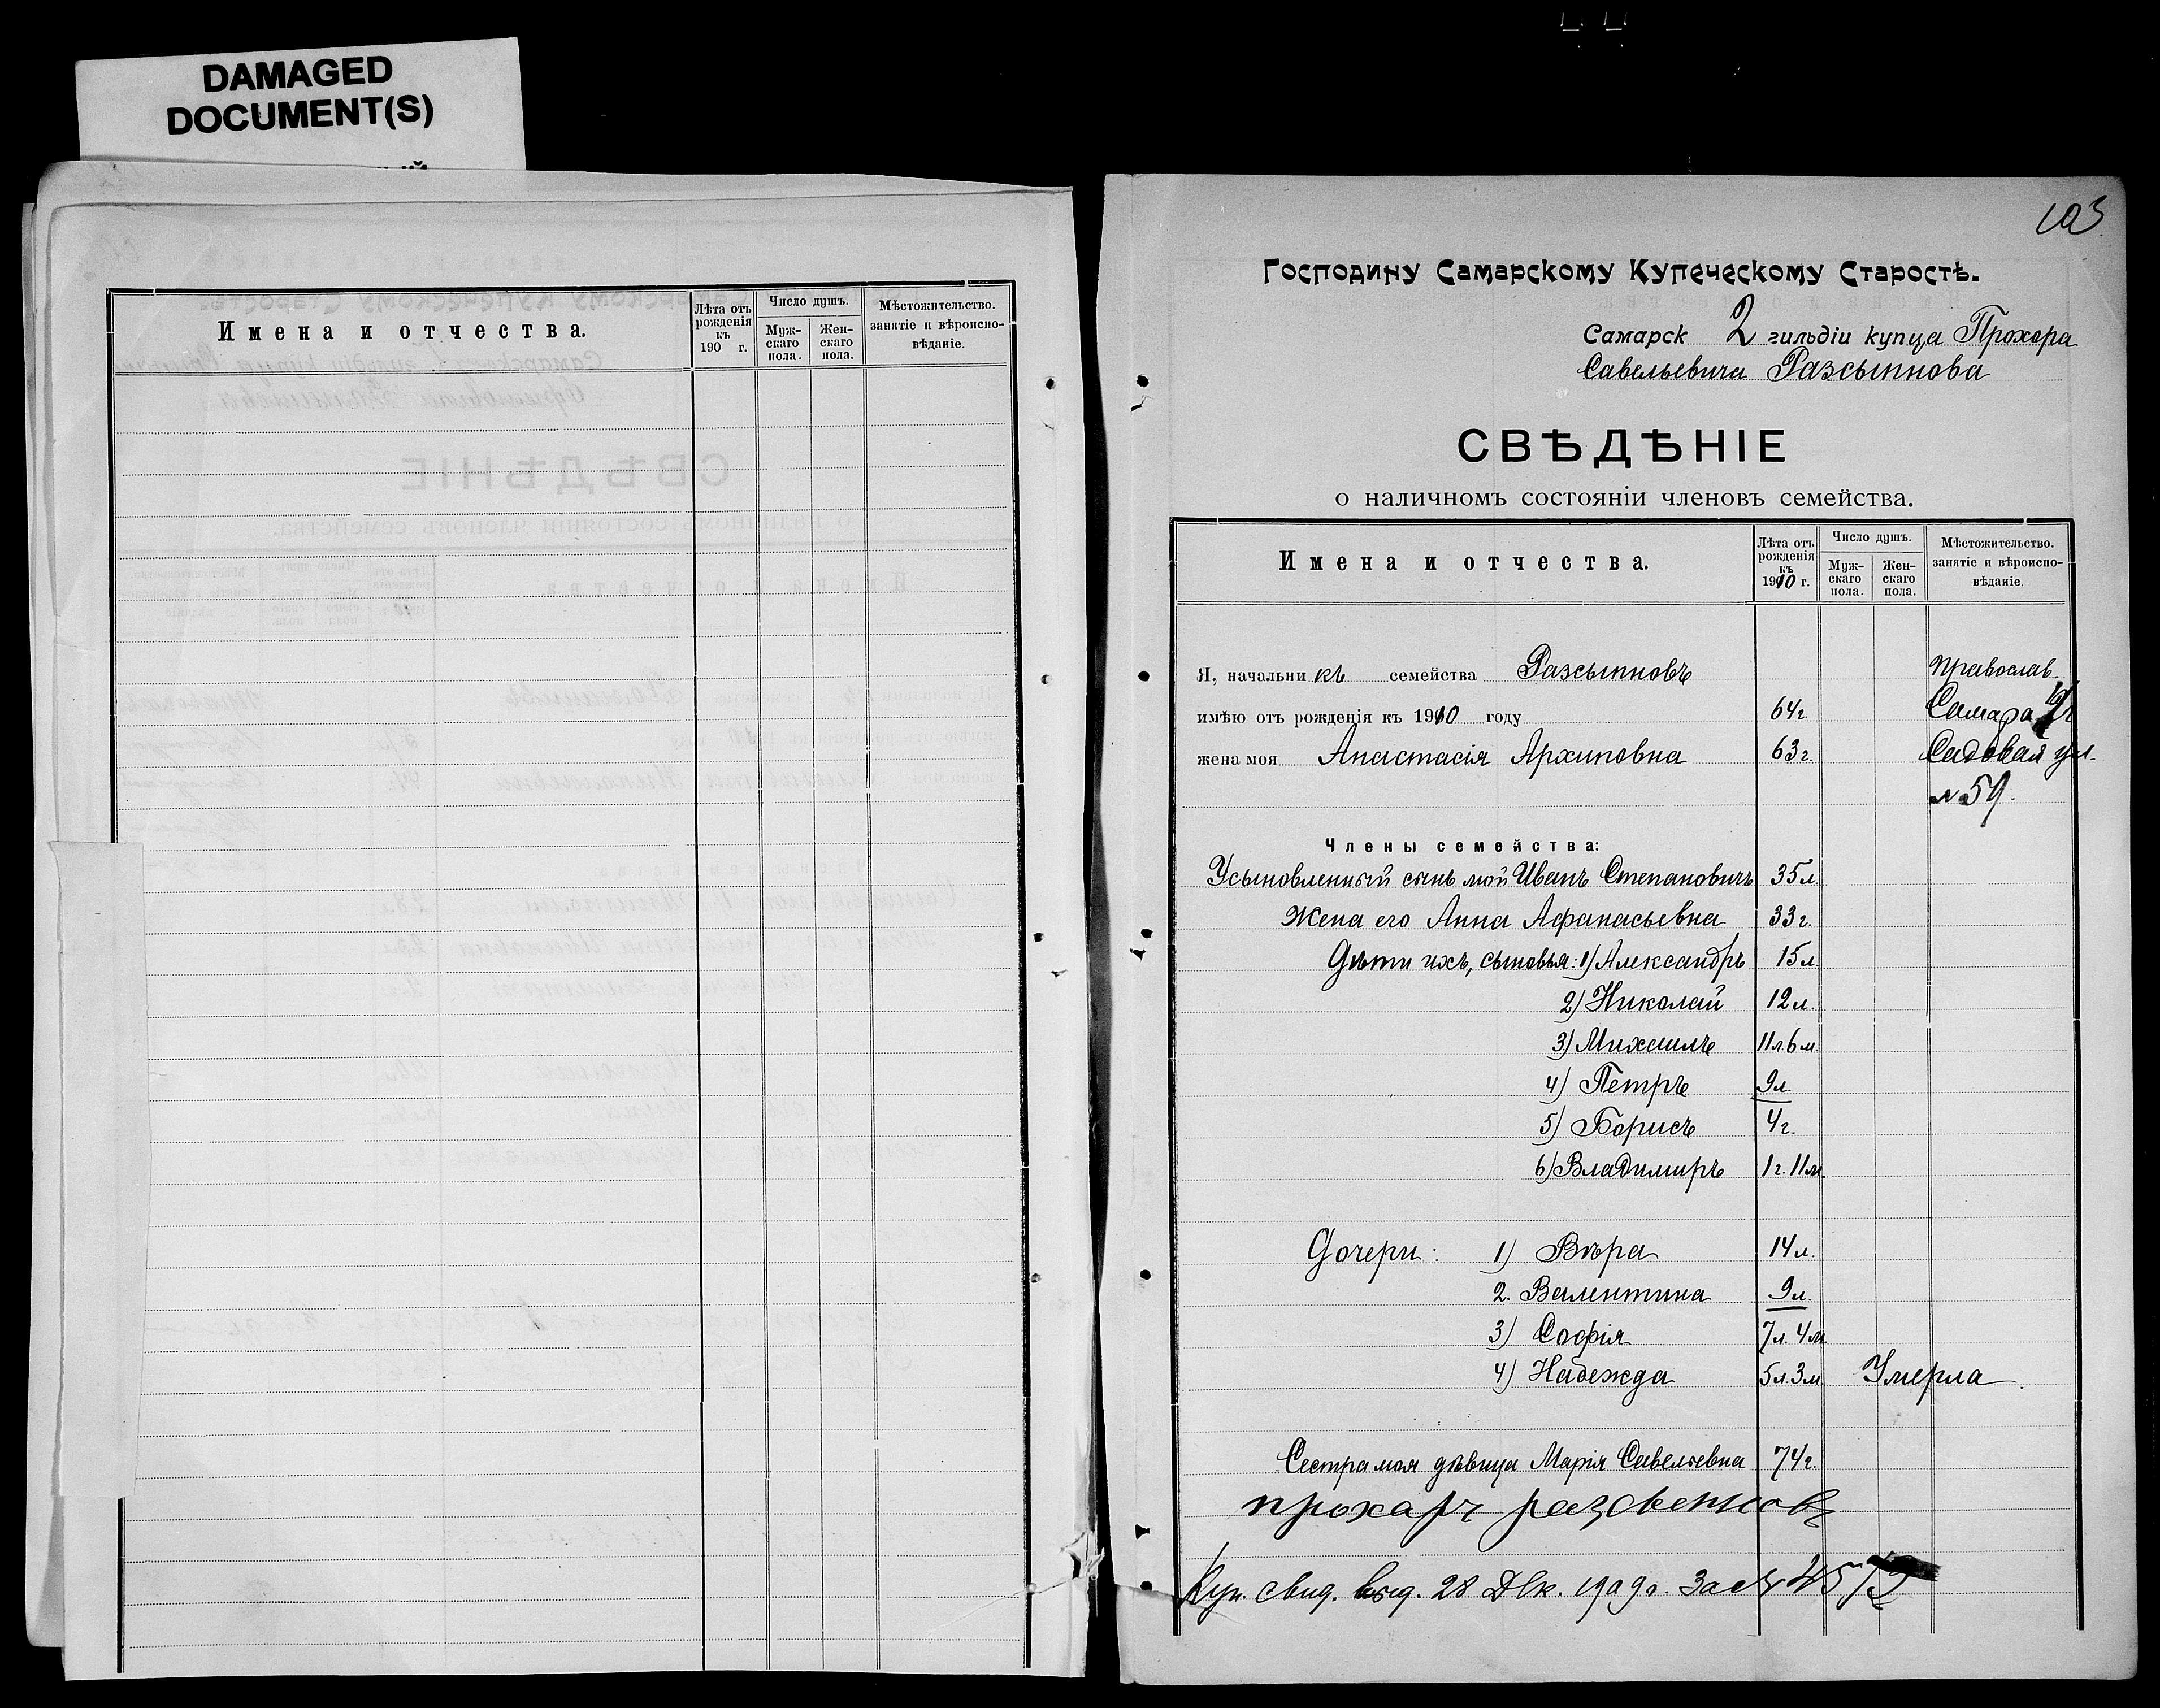 DAMAGED
DOCUMENT(S)
Имена и отчества.
Лѣта отъ рожденія къ 190 г.
Число душъ.
Мужскаго пола.
Женскаго пола.
Мѣстожительство. занятіе и вѣроисповѣданіе.
103
Господину Самарскому Купеческому Старостѣ.
Самарск 2 гильдіи купца Прохора
Савельевича Разсыпнова
СВѢДѢНІЕ
о наличномъ состояніи членовъ семейства.
Имена и отчества.
Лѣта отъ рожденія къ 1910 г.
Число душъ.
Мужскаго пола.
Женскаго пола.
Мѣстожительство. занятіе и вѣроисповѣданіе.
Я, начальникъ семейства Разсыпновъ Православ.
имѣю отъ рожденія къ 1910 году 64г. Самара
жена моя Анастасія Архиповна 63г. Садовая ул.
№ 59.
Члены семейства:
Усыновленный сынъ мой Иванъ Степановичъ 35л.
Жена его Анна Афанасьевна 33г.
Дѣти ихъ, сыновья: 1) Александръ 15л
2) Николай 12л.
3) Михаилъ 11л.6м.
4) Петръ 9л.
5) Борисъ 4г.
6) Владимиръ 1г.11м.
Дочери: 1) Вѣра 14л.
2. Валентина 9л.
3) Софія 7л.4м
4) Надежда 5л.3м. Умерла.
Сестра моя дѣвица Марія Савельевна 74г.
прохаръ
Куп. свид. выд. 28 Дек. 1909г. За №